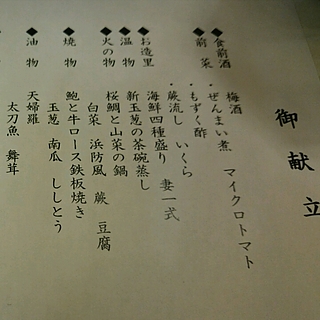 御献立
◆食前酒 梅酒
◆前菜 ・ぜんまい煮 マイクロトマト
・もずく酢
・蕨流し いくら
◆お造里 海鮮四種盛り 妻一式
◆温物 新玉葱の茶碗蒸し
◆火の物 桜鯛と山菜の鍋
白菜 浜防風 蕨 豆腐
◆焼物 鮑と牛ロース鉄板焼き
玉葱 南瓜 ししとう
◆油物 天婦羅
太刀魚 舞茸